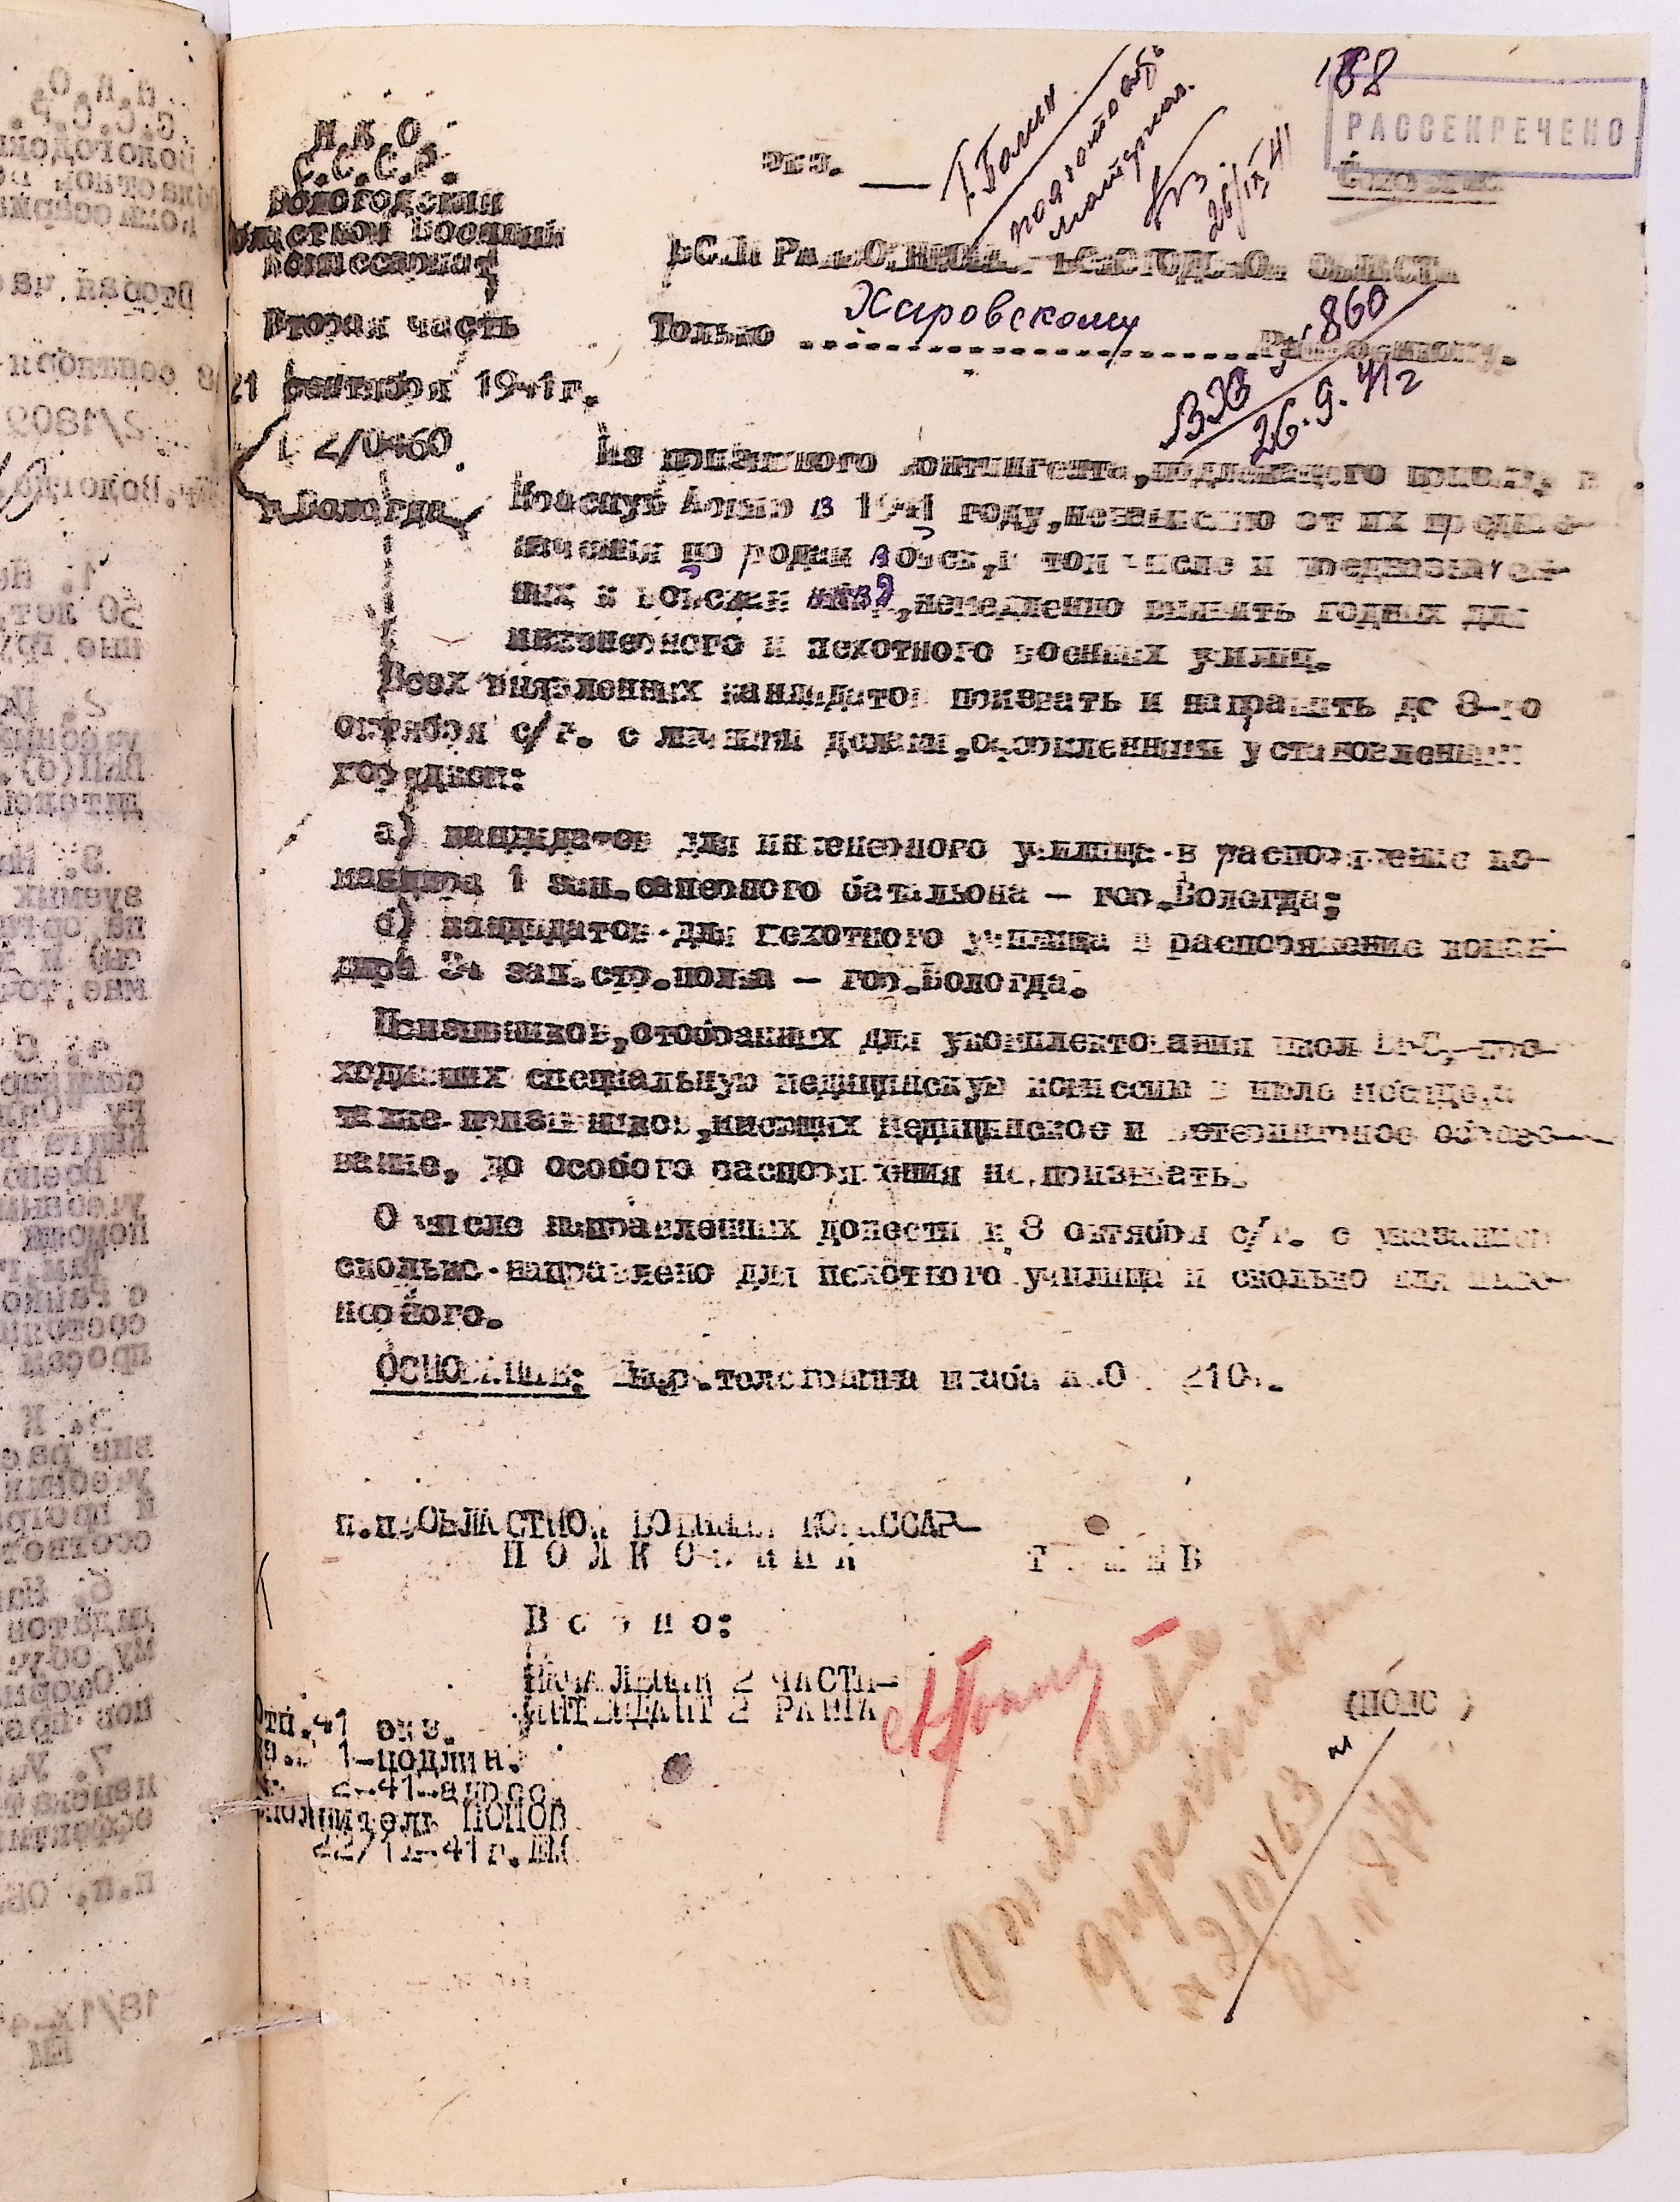 168
РАССЕКРЕЧЕНО
Н К О
С.С.С.Р.
Вологодский
Областной Военный
Комиссариат
Вторая часть
21 сентября 1941г.
2/0460
г.Вологда
экз.
Т. Галин
26/IX 41
ВСЕМ РАЙВОЕНКОМАМ ВОЛОГОДСКОЙ ОБЛАСТИ
Только Харовскому Райвоенкому.
860
26.9.41г
Из призывного контингента,подлежащего призыву в
Красную Армию в 1941 году,независимо от их предназ-
начения по родам войск,в том числе и предназначен-
ных в войска НКВД,немедленно выявить годных для
инженерного и пехотного военных училищ.
Всех выявленных кандидатов призвать и направить до 8-го
октября с/г. с личными делами,оформленными установленным
порядком:
а) кандидатов для инженерного училища в распоряжение ко-
мандира 1 зап.саперного батальона – гор.Вологда;
б) кандидатов для пехотного училища в распоряжение коман-
дира 34 зап.стр.полка – гор.Вологда.
Призывников,отобранных для укомплектования школ ВВС, про-
ходивших специальную медицинскую комиссию в июле месяце,а
также призывников,имеющих медицинское и ветеринарное образо-
вание, до особого распоряжения не призывать.
О числе направленных донести к 8 октября с/г. с указанием
сколько направлено для пехотного училища и сколько для инже-
нерного.
Основание: Шифр.телеграмма штаба АВО 210.
п.п.ОБЛАСТНОЙ ВОЕННЫЙ КОМИССАР–
П О Л К О В Н И К
В е р н о:
НАЧАЛЬНИК 2 ЧАСТИ–
ИНТЕНДАНТ 2 РАНГА
(ПОПОВ)
Отп.41 экз.
1–подлин.
2–41–адрес.
Исполнитель ПОПОВ
22/IX–41г.
Отпишите
№ 2/0463